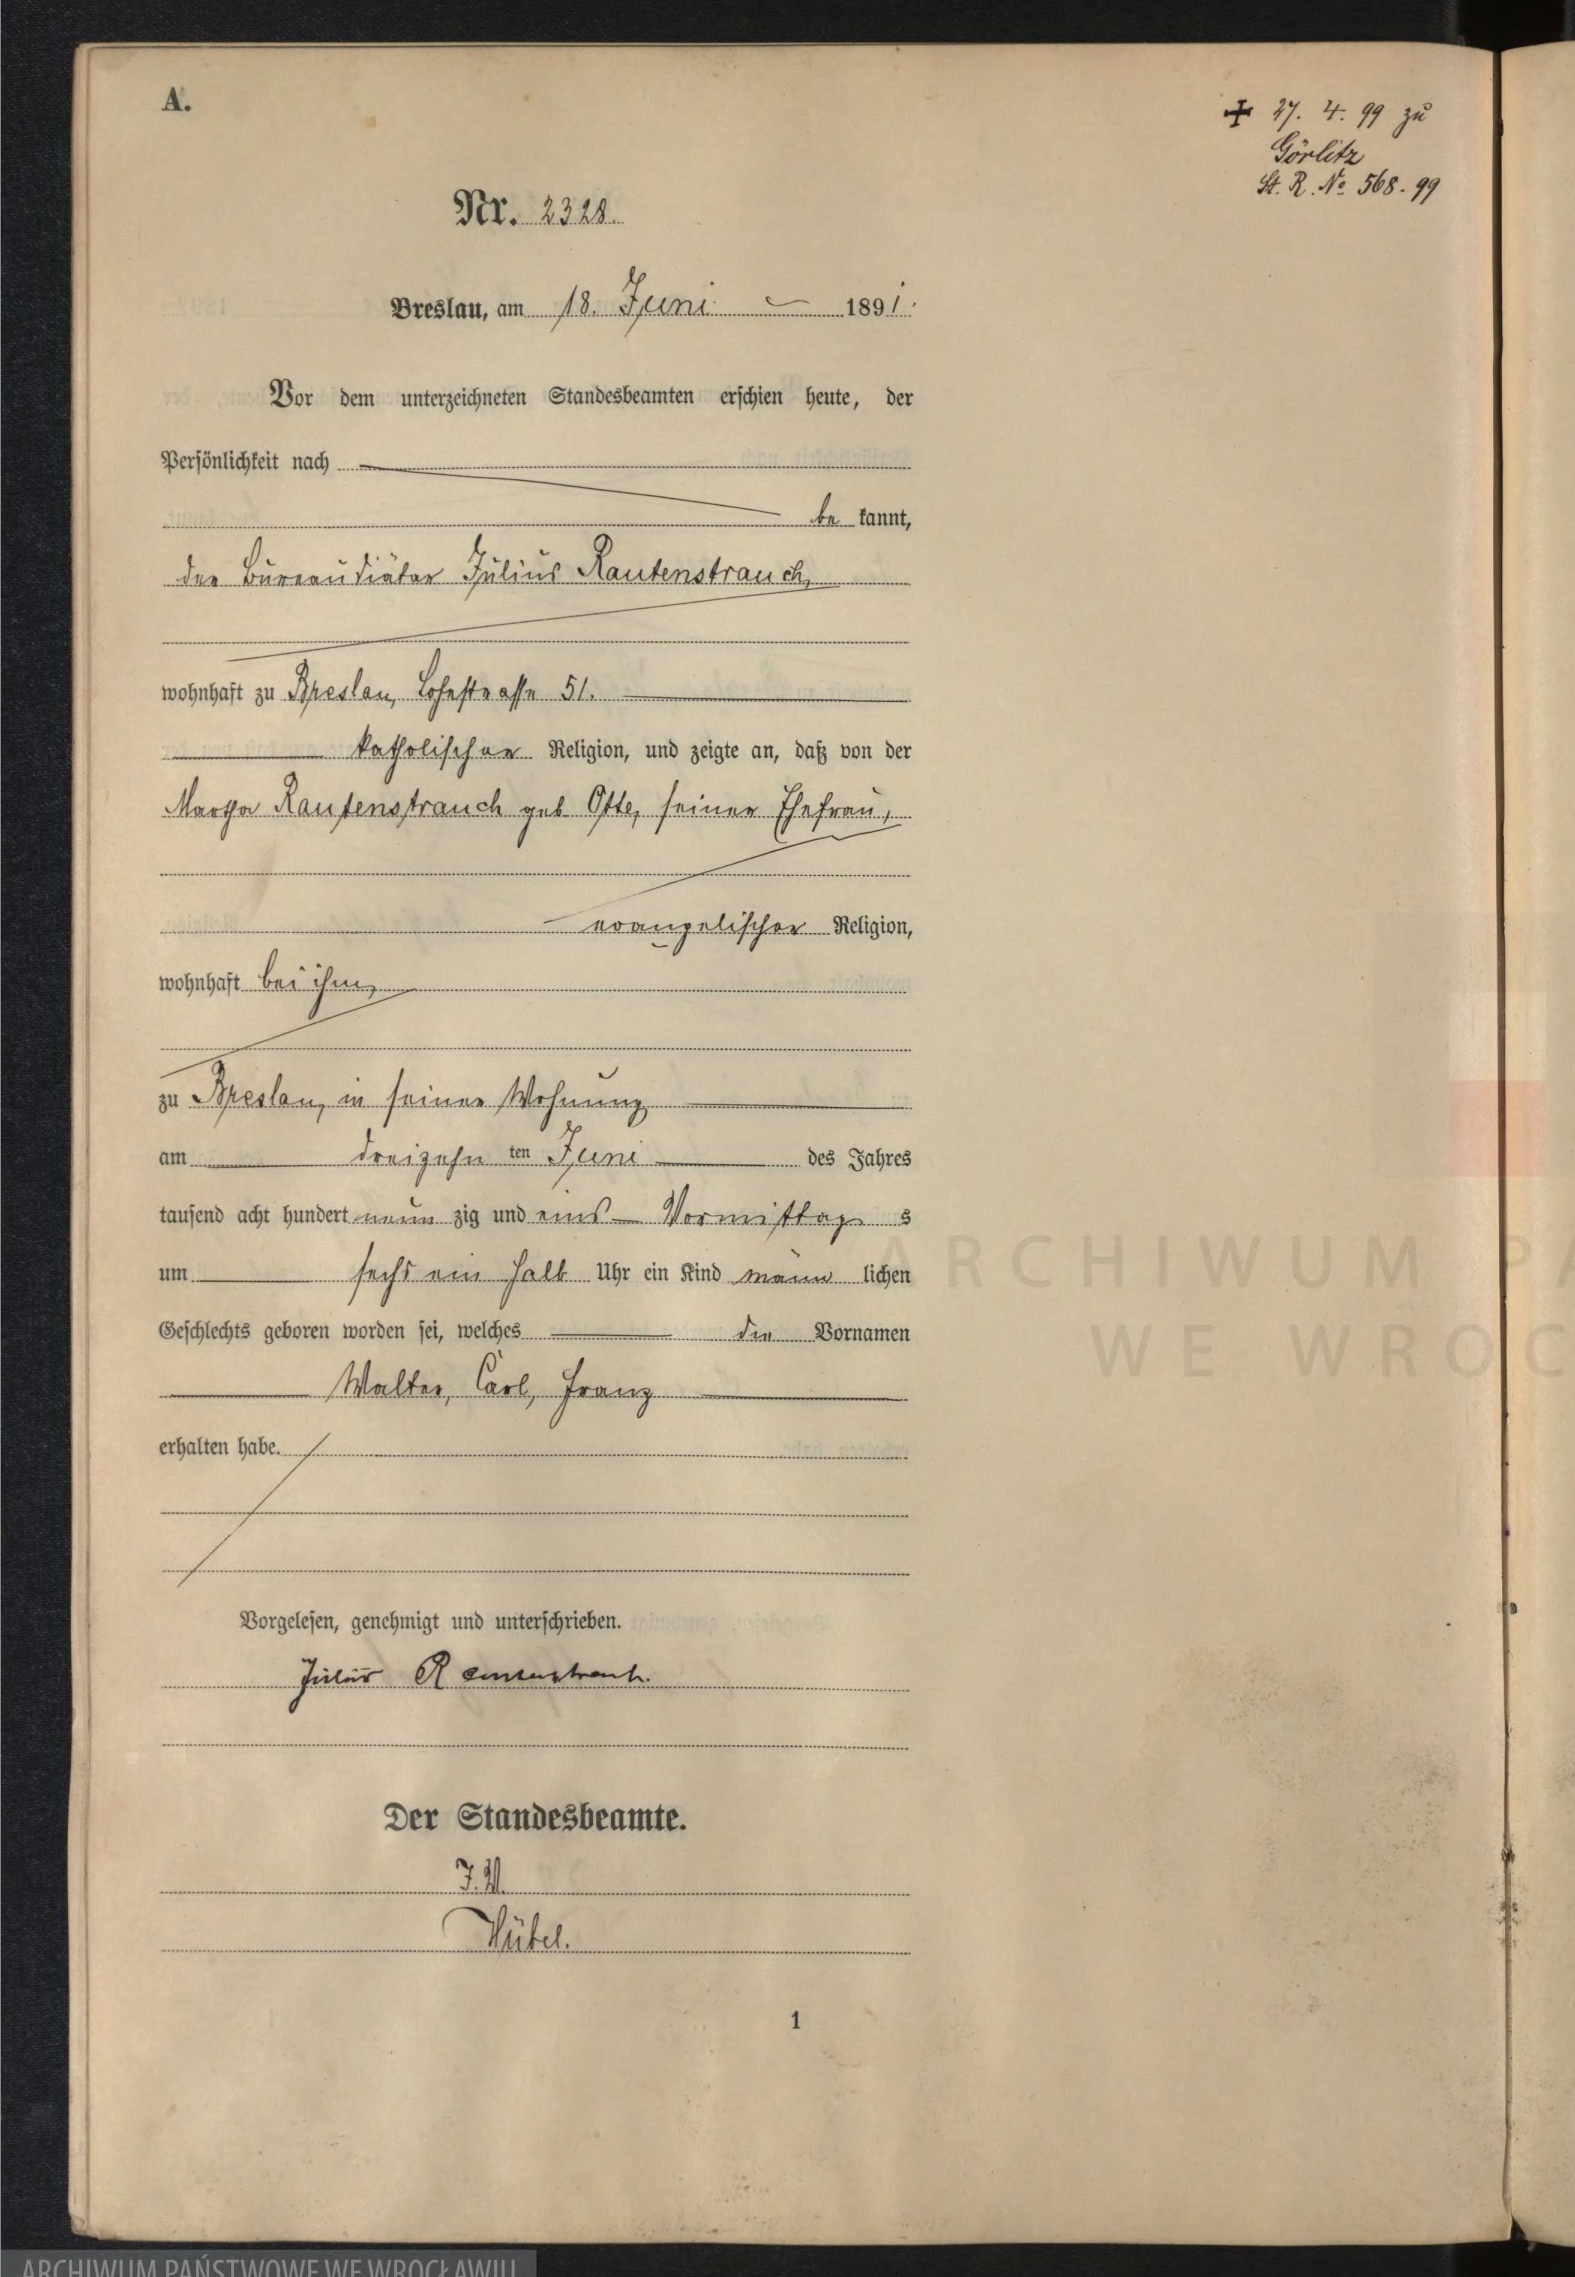 A.
+ 27. 4. 99 zu
Görlitz
St. R. No 568. 99
Nr. 2328.
Breslau, am 18. Juni 1891.
Vor dem unterzeichneten Standesbeamten erschien heute, der
Persönlichkeit nach
be kannt,
der Büreaudiätar Julius Rautenstrauch,
wohnhaft zu Breslau, Lohestrasse 51.
katholischer Religion, und zeigte an, daß von der
Martha Rautenstrauch geb Otte, seiner Ehefrau,
evangelischer Religion,
wohnhaft bei ihm,
zu Breslau, in seiner Wohnung
am dreizehn ten Juni des Jahres
tausend acht hundert neun zig und eins Vormittag s
um sechs ein halb Uhr ein Kind männ lichen
Geschlechts geboren worden sei, welches die Vornamen
Walter, Carl, Franz
erhalten habe.
Vorgelesen, genehmigt und unterschrieben.
Julius Rautenstrauch.
Der Standesbeamte.
J. V.
Hübel.
1
ARCHIWUM PA
WE WROC
ARCHIWUM PAŃSTWOWE WE WROCŁAWIU